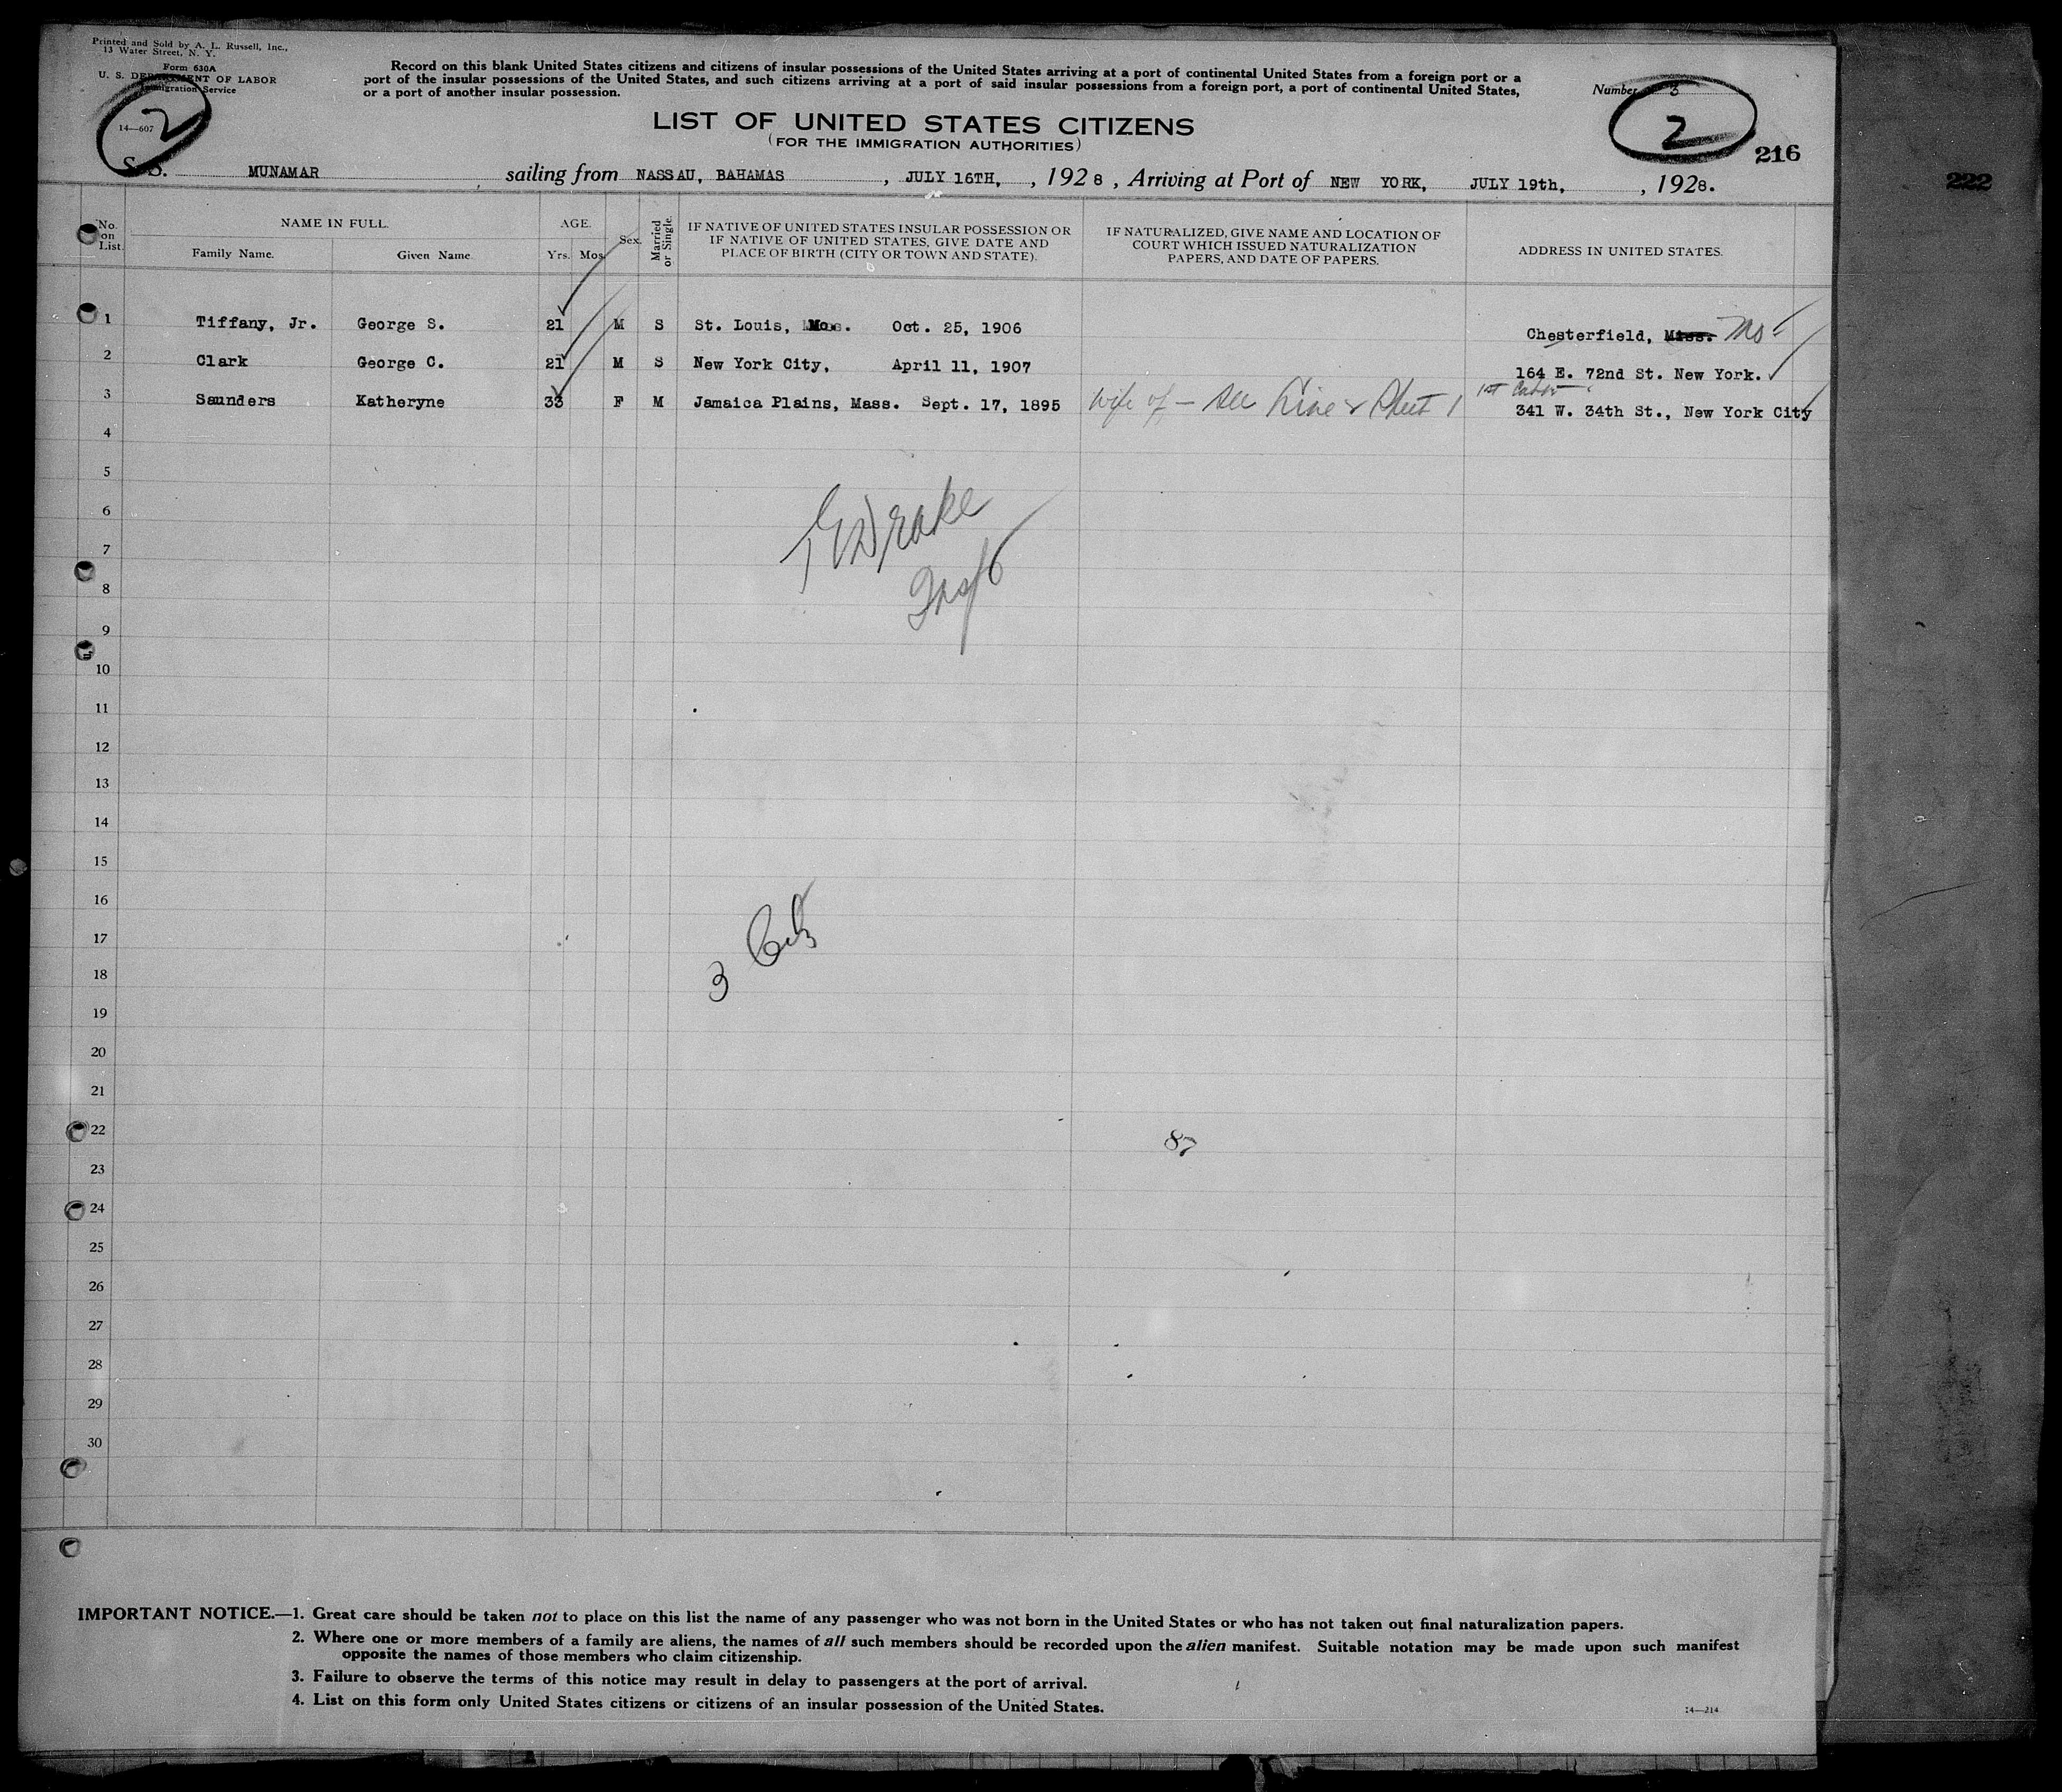 Printed and Sold by A. L. Russell, Inc.,
13 Water Street, N. Y.
Form 630A
U. S. DEPARTMENT OF LABOR
Immigration Service
14—607
2
Record on this blank United States citizens and citizens of insular possessions of the United States arriving at a port of continental United States from a foreign port or a
port of the insular possessions of the United States, and such citizens arriving at a port of said insular possessions from a foreign port, a port of continental United States,
or a port of another insular possession.
Number 3
2
216
222
LIST OF UNITED STATES CITIZENS
(FOR THE IMMIGRATION AUTHORITIES)
S. S. MUNAMAR sailing from NASSAU, BAHAMAS, JULY 16TH, , 1928, Arriving at Port of NEW YORK, JULY 19th, , 1928.
No. on List.
NAME IN FULL.
Family Name. Given Name.
AGE.
Yrs. Mos.
Sex.
Married or Single.
IF NATIVE OF UNITED STATES INSULAR POSSESSION OR
IF NATIVE OF UNITED STATES, GIVE DATE AND
PLACE OF BIRTH (CITY OR TOWN AND STATE).
IF NATURALIZED, GIVE NAME AND LOCATION OF
COURT WHICH ISSUED NATURALIZATION
PAPERS, AND DATE OF PAPERS.
ADDRESS IN UNITED STATES.
1 Tiffany, Jr. George S. 21 M S St. Louis, Mo. Oct. 25, 1906 Chesterfield, Miss. Mo
2 Clark George C. 21 M S New York City, April 11, 1907 164 E. 72nd St. New York.
3 Saunders Katheryne 33 F M Jamaica Plains, Mass. Sept. 17, 1895 Wife of — see Line Sheet 1 1st Cabin 341 W. 34th St., New York City
4
5
6
Drake
7
8
Insp
9
10
11
12
13
14
15
16
17
3 Cits
18
19
20
21
22
87
23
24
25
26
27
28
29
30
IMPORTANT NOTICE.—1. Great care should be taken not to place on this list the name of any passenger who was not born in the United States or who has not taken out final naturalization papers.
2. Where one or more members of a family are aliens, the names of all such members should be recorded upon the alien manifest. Suitable notation may be made upon such manifest
opposite the names of those members who claim citizenship.
3. Failure to observe the terms of this notice may result in delay to passengers at the port of arrival.
4. List on this form only United States citizens or citizens of an insular possession of the United States.
14—214